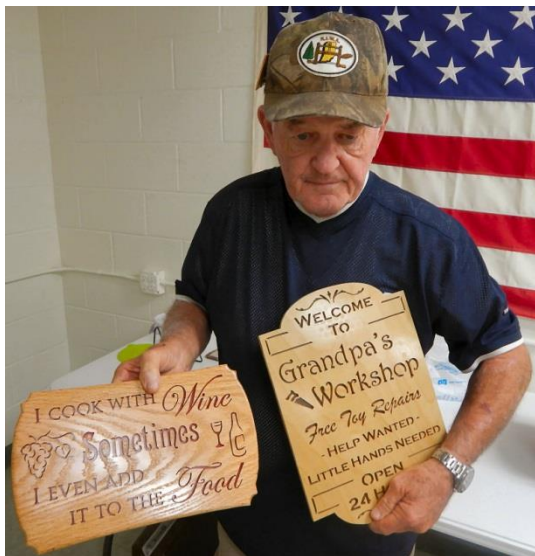 I COOK WITH Wine
Sometimes
I EVEN ADD
IT TO THE Food
WELCOME
TO
Grandpa's
Workshop
Free Toy Repairs
- HELP WANTED -
LITTLE HANDS NEEDED
OPEN
24 H